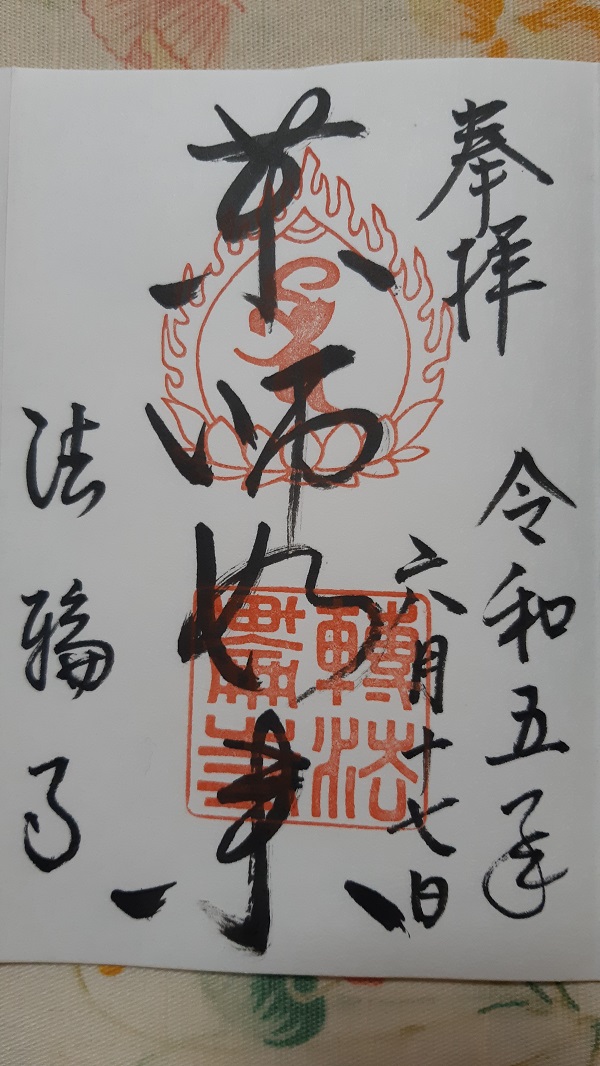 奉拝
令和五年
六月十七日
薬師如来
轉法
法輪寺